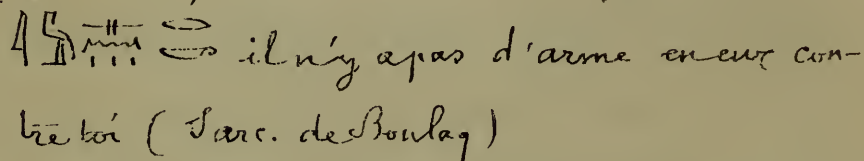 𓇋𓅓𓊃𓈖𓏥𓂋𓎡 il n'y a pas d'arme en eux con-
tre toi (Sarc. de Boulaq)